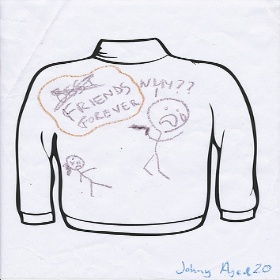 BEST
FRIENDS
FOREVER
WHY??
Johny Aged 20